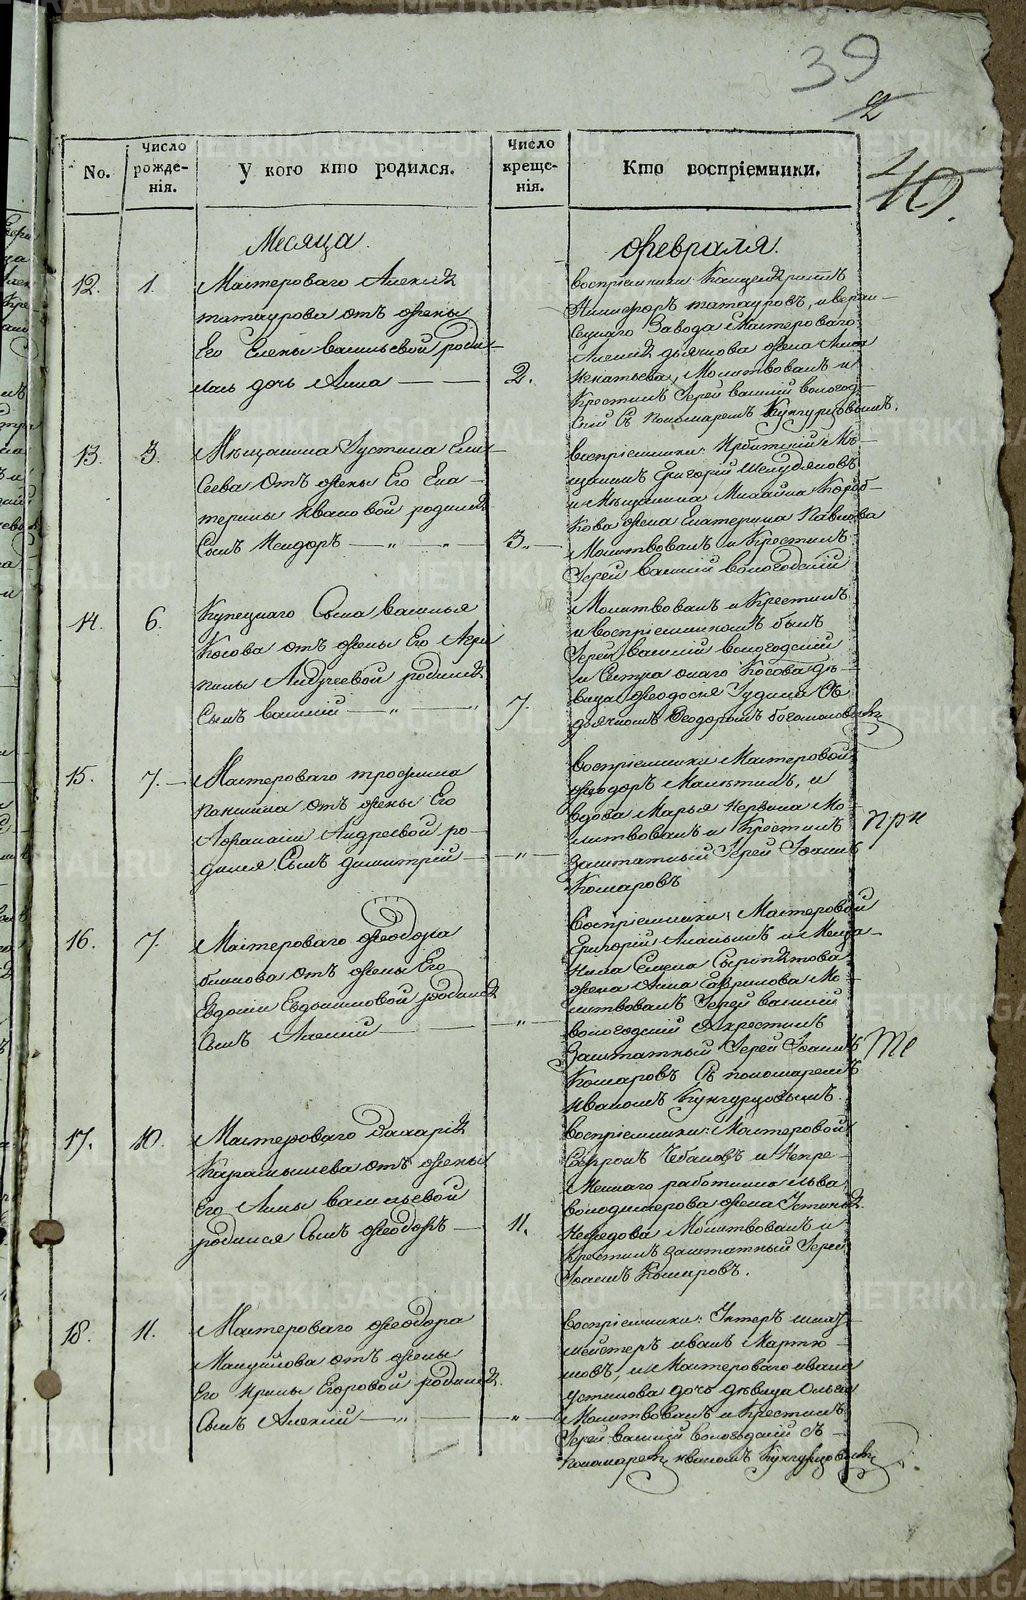 39
2
40.
No.
Число рожде-нія.
У кого кто родился.
Число креще-нія.
Кто воспріемники.
Месяца
февраля
12.
1.
Мастероваго Алексѣя
татаурова отъ жены
Его Елены васильевой роди-
лась дочь Анна
2.
воспріемники
татауровъ,
Завода Мастероваго
дьячкова жена Анна
Молитвовалъ и
Крестилъ Іерей василій вологод-
скій Съ пономаремъ Кунгурцовымъ.
13.
3.
Мѣщанина Густина Ели-
сеева Отъ жены Его Ека-
терины Ивановой родился
Сынъ Исидоръ
3.
воспріемники: Ирбитскій Мѣ-
щанинъ Григорій Шелудяковъ
и Мѣщанина Михаила Короб-
кова жена Екатерина Павлова
Молитвовалъ и Крестилъ
Іерей василій вологодскій
14.
6.
Купецкаго Сына василья
Косова отъ жены Его Агри
пины Авдеевой родился
Сынъ василій
7.
Молитвовалъ и Крестилъ
и воспріемникомъ былъ
Іерей василій вологодскій
и Сестра онаго Косова дѣ-
вица феодосья Съ
дьячкомъ Феодоромъ богомоловымъ
15.
7.
Мастероваго трофима
панкина отъ жены Его
Афанасіи Андреевой ро-
дился Сынъ димитрій
"
воспріемники Мастеровой
феодоръ и
вдова Марья Мо-
литвовалъ и Крестилъ
Заштатный Іерей Іоаннъ
Комаровъ
при
16.
7.
Мастероваго феодора
блинова отъ жены Его
Евдокіи Евдокимовой родился
Сынъ Алексій
"
Воспріемники, Мастеровой
Григорій Ананьинъ и
жена Анна Гаврилова Мо-
литвовалъ Іерей василій
вологодскій А крестилъ
Заштатный Іерей Іоаннъ
Комаровъ Съ пономаремъ
иваномъ Кунгурцовымъ.
те
17.
10.
Мастероваго Захарія
Карамышева отъ жены
Его Анны васильевой
родился Сынъ феодоръ
11.
воспріемники: Мастеровой
Сафронъ Чебаковъ и Непре-
меннаго работника льва
володимерова жена Устинья
Нефедова Молитвовалъ и
Крестилъ заштатный Іерей
Іоаннъ Комаровъ.
18.
11.
Мастероваго феодора
Мануйлова отъ жены
Его Ирины Егоровой родился
Сынъ Алексій
"
воспріемники: Унтеръ шихт-
мейстеръ иванъ Мартю-
шовъ, и Мастероваго ивана
устинова дочь дѣвица Ольга
Молитвовалъ и Крестилъ
Іерей василій вологодскій съ
пономаремъ иваномъ Кунгурцовымъ
METRIKI.GASO-URAL.RU